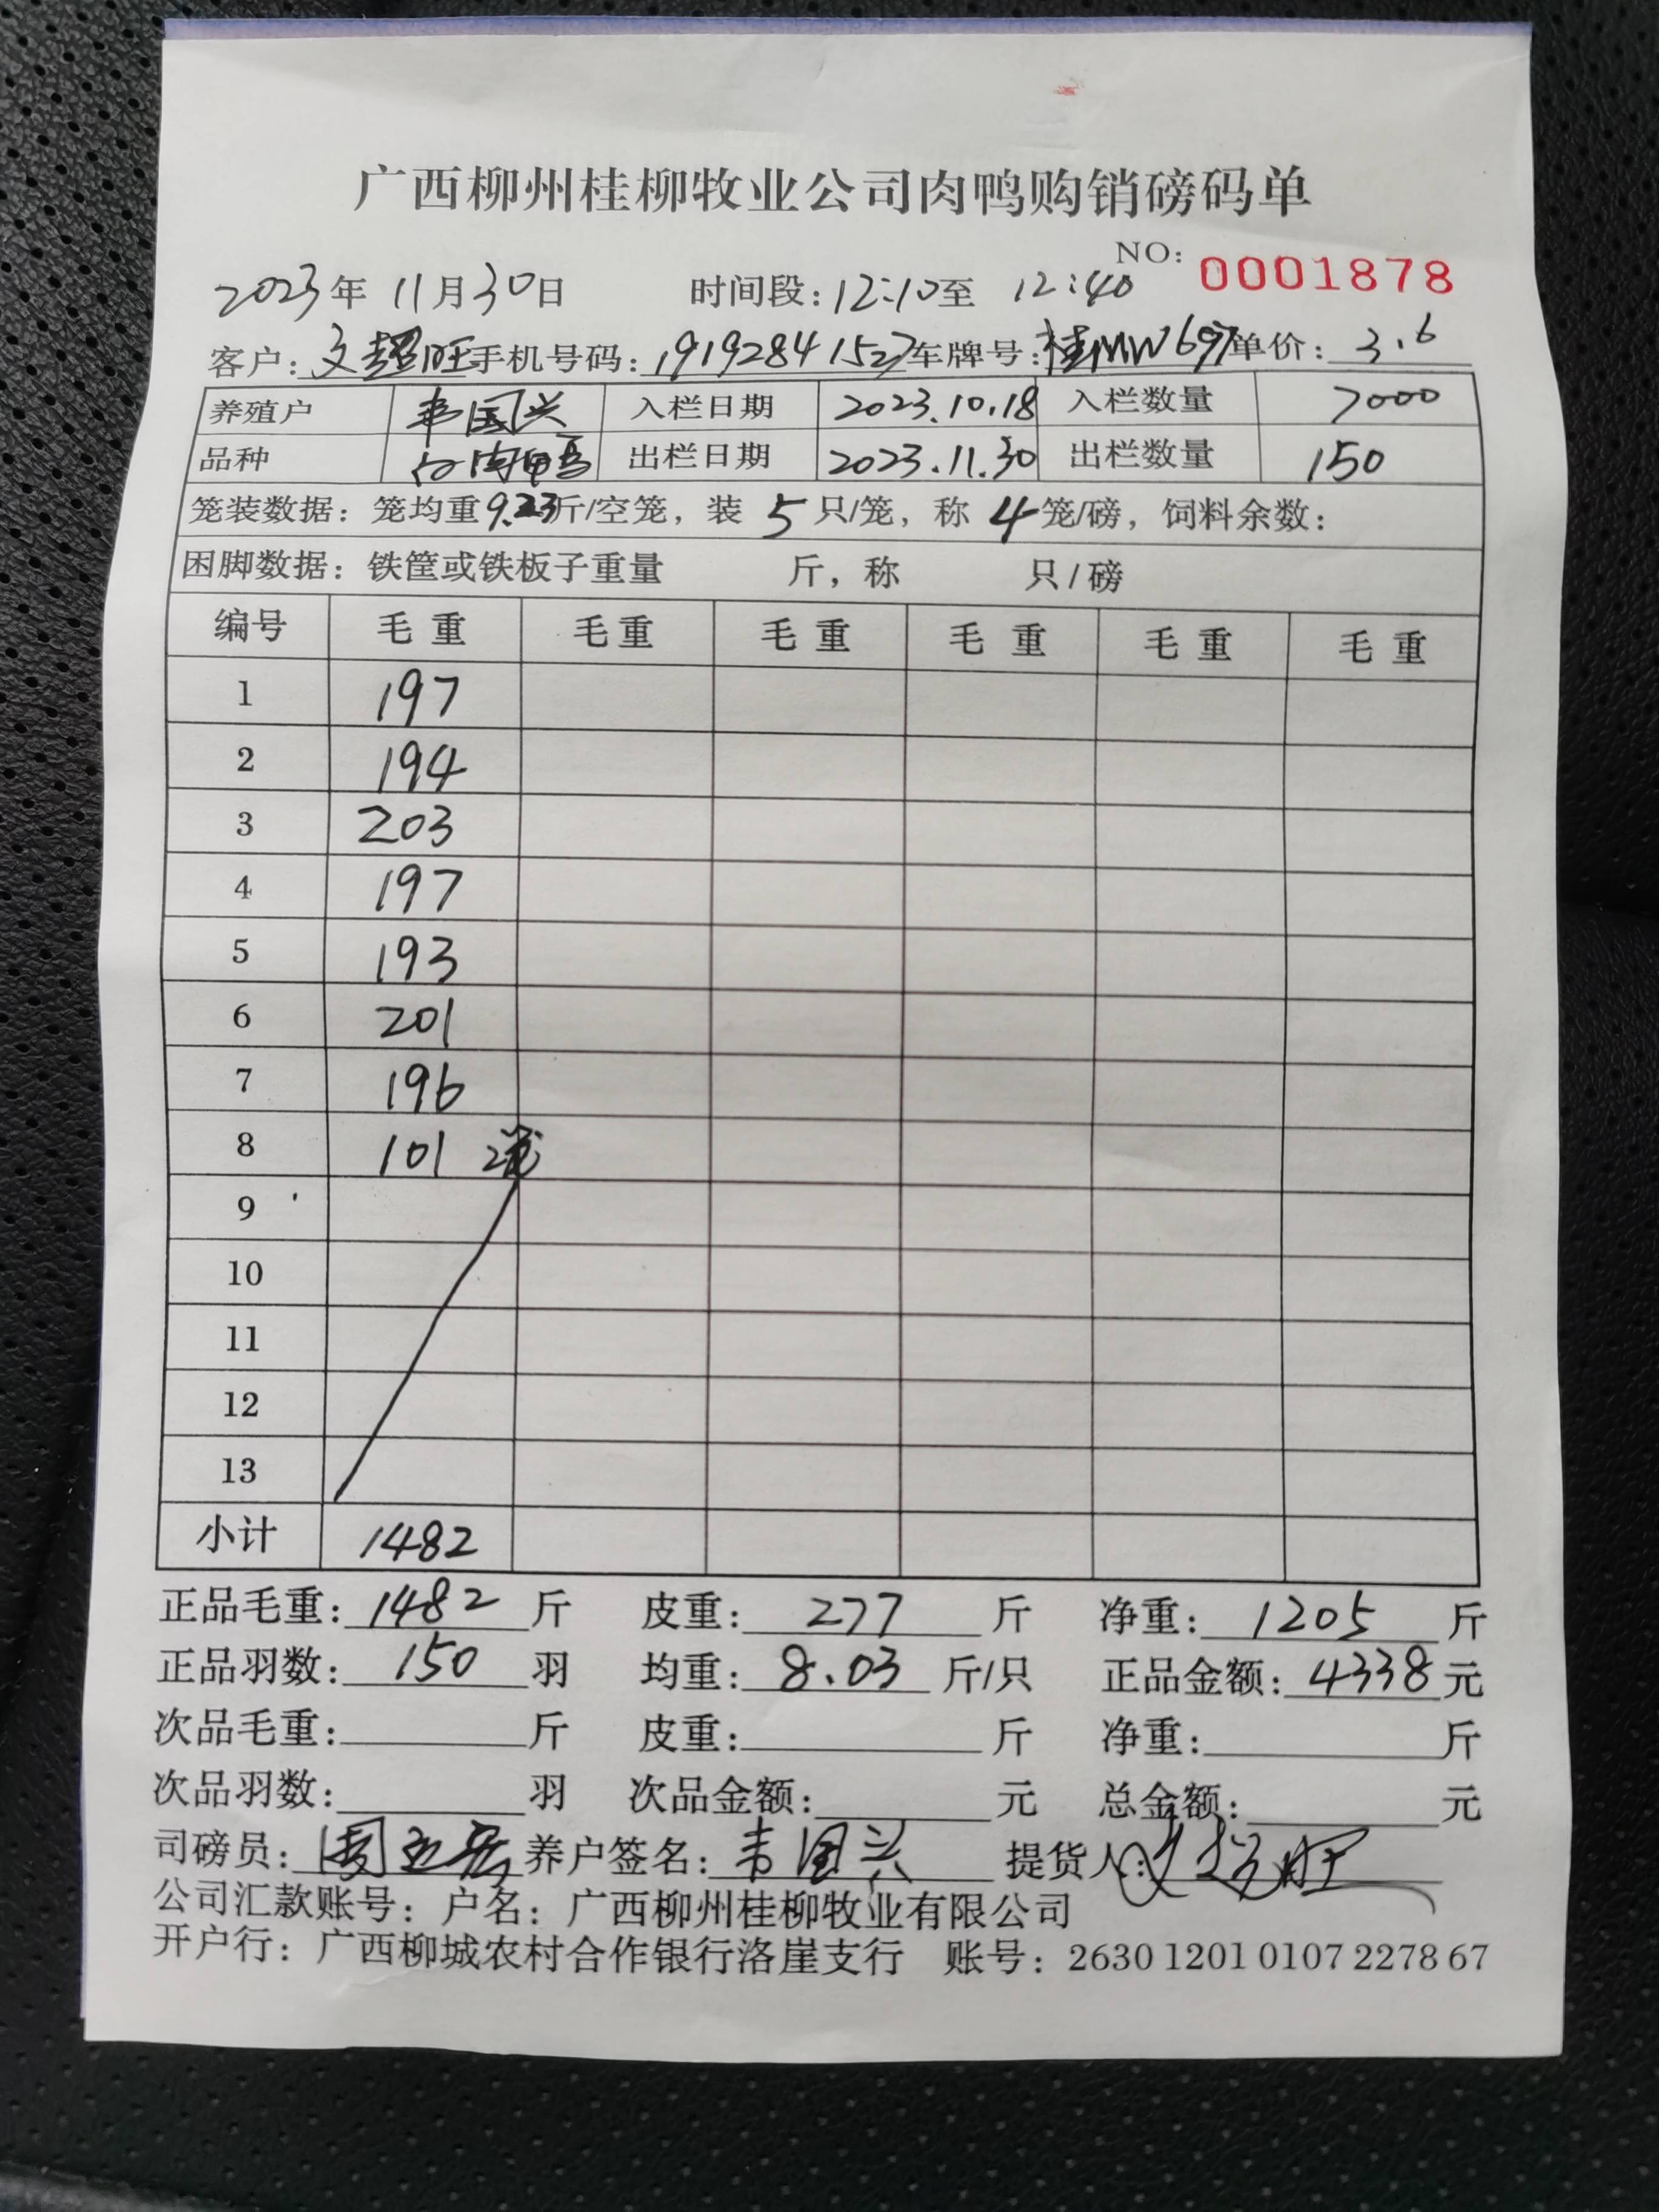 广西柳州桂柳牧业公司肉鸭购销磅码单
NO: 0001878
2023年 11月30日 时间段:12:10至 12:40
客户:文超旺 手机号码:19192841527 车牌号:桂MW697 单价:3.6
养殖户 韦国兴 入栏日期 2023.10.18 入栏数量 7000
品种 白肉鸭 出栏日期 2023.11.30 出栏数量 150
笼装数据:笼均重9.23斤/空笼,装 5 只/笼,称 4 笼/磅,饲料余数:
困脚数据:铁筐或铁板子重量 斤,称 只/磅
编号 毛重 毛重 毛重 毛重 毛重 毛重
1 197
2 194
3 203
4 197
5 193
6 201
7 196
8 101 2笼
9
10
11
12
13
小计 1482
正品毛重:1482 斤 皮重:277 斤 净重:1205 斤
正品羽数:150 羽 均重:8.03 斤/只 正品金额:4338元
次品毛重: 斤 皮重: 斤 净重: 斤
次品羽数: 羽 次品金额: 元 总金额: 元
司磅员: 养户签名:韦国兴 提货人:文超旺
公司汇款账号:户名:广西柳州桂柳牧业有限公司
开户行:广西柳城农村合作银行洛崖支行 账号:2630 1201 0107 2278 67